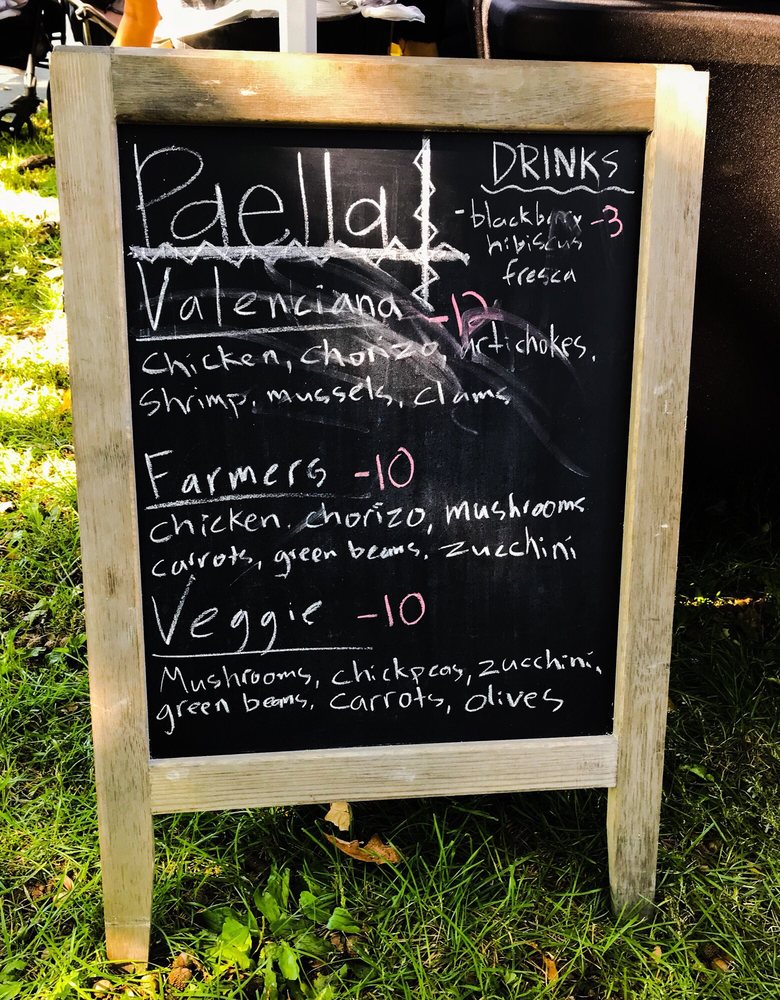 Paella
Valenciana -12
chicken, chorizo, artichokes,
shrimp, mussels, clams
Farmers -10
chicken, chorizo, mushrooms
carrots, green beans, zucchini
Veggie -10
Mushrooms, chickpeas, zucchini,
green beans, carrots, olives
DRINKS
- blackberry -3
hibiscus
fresca